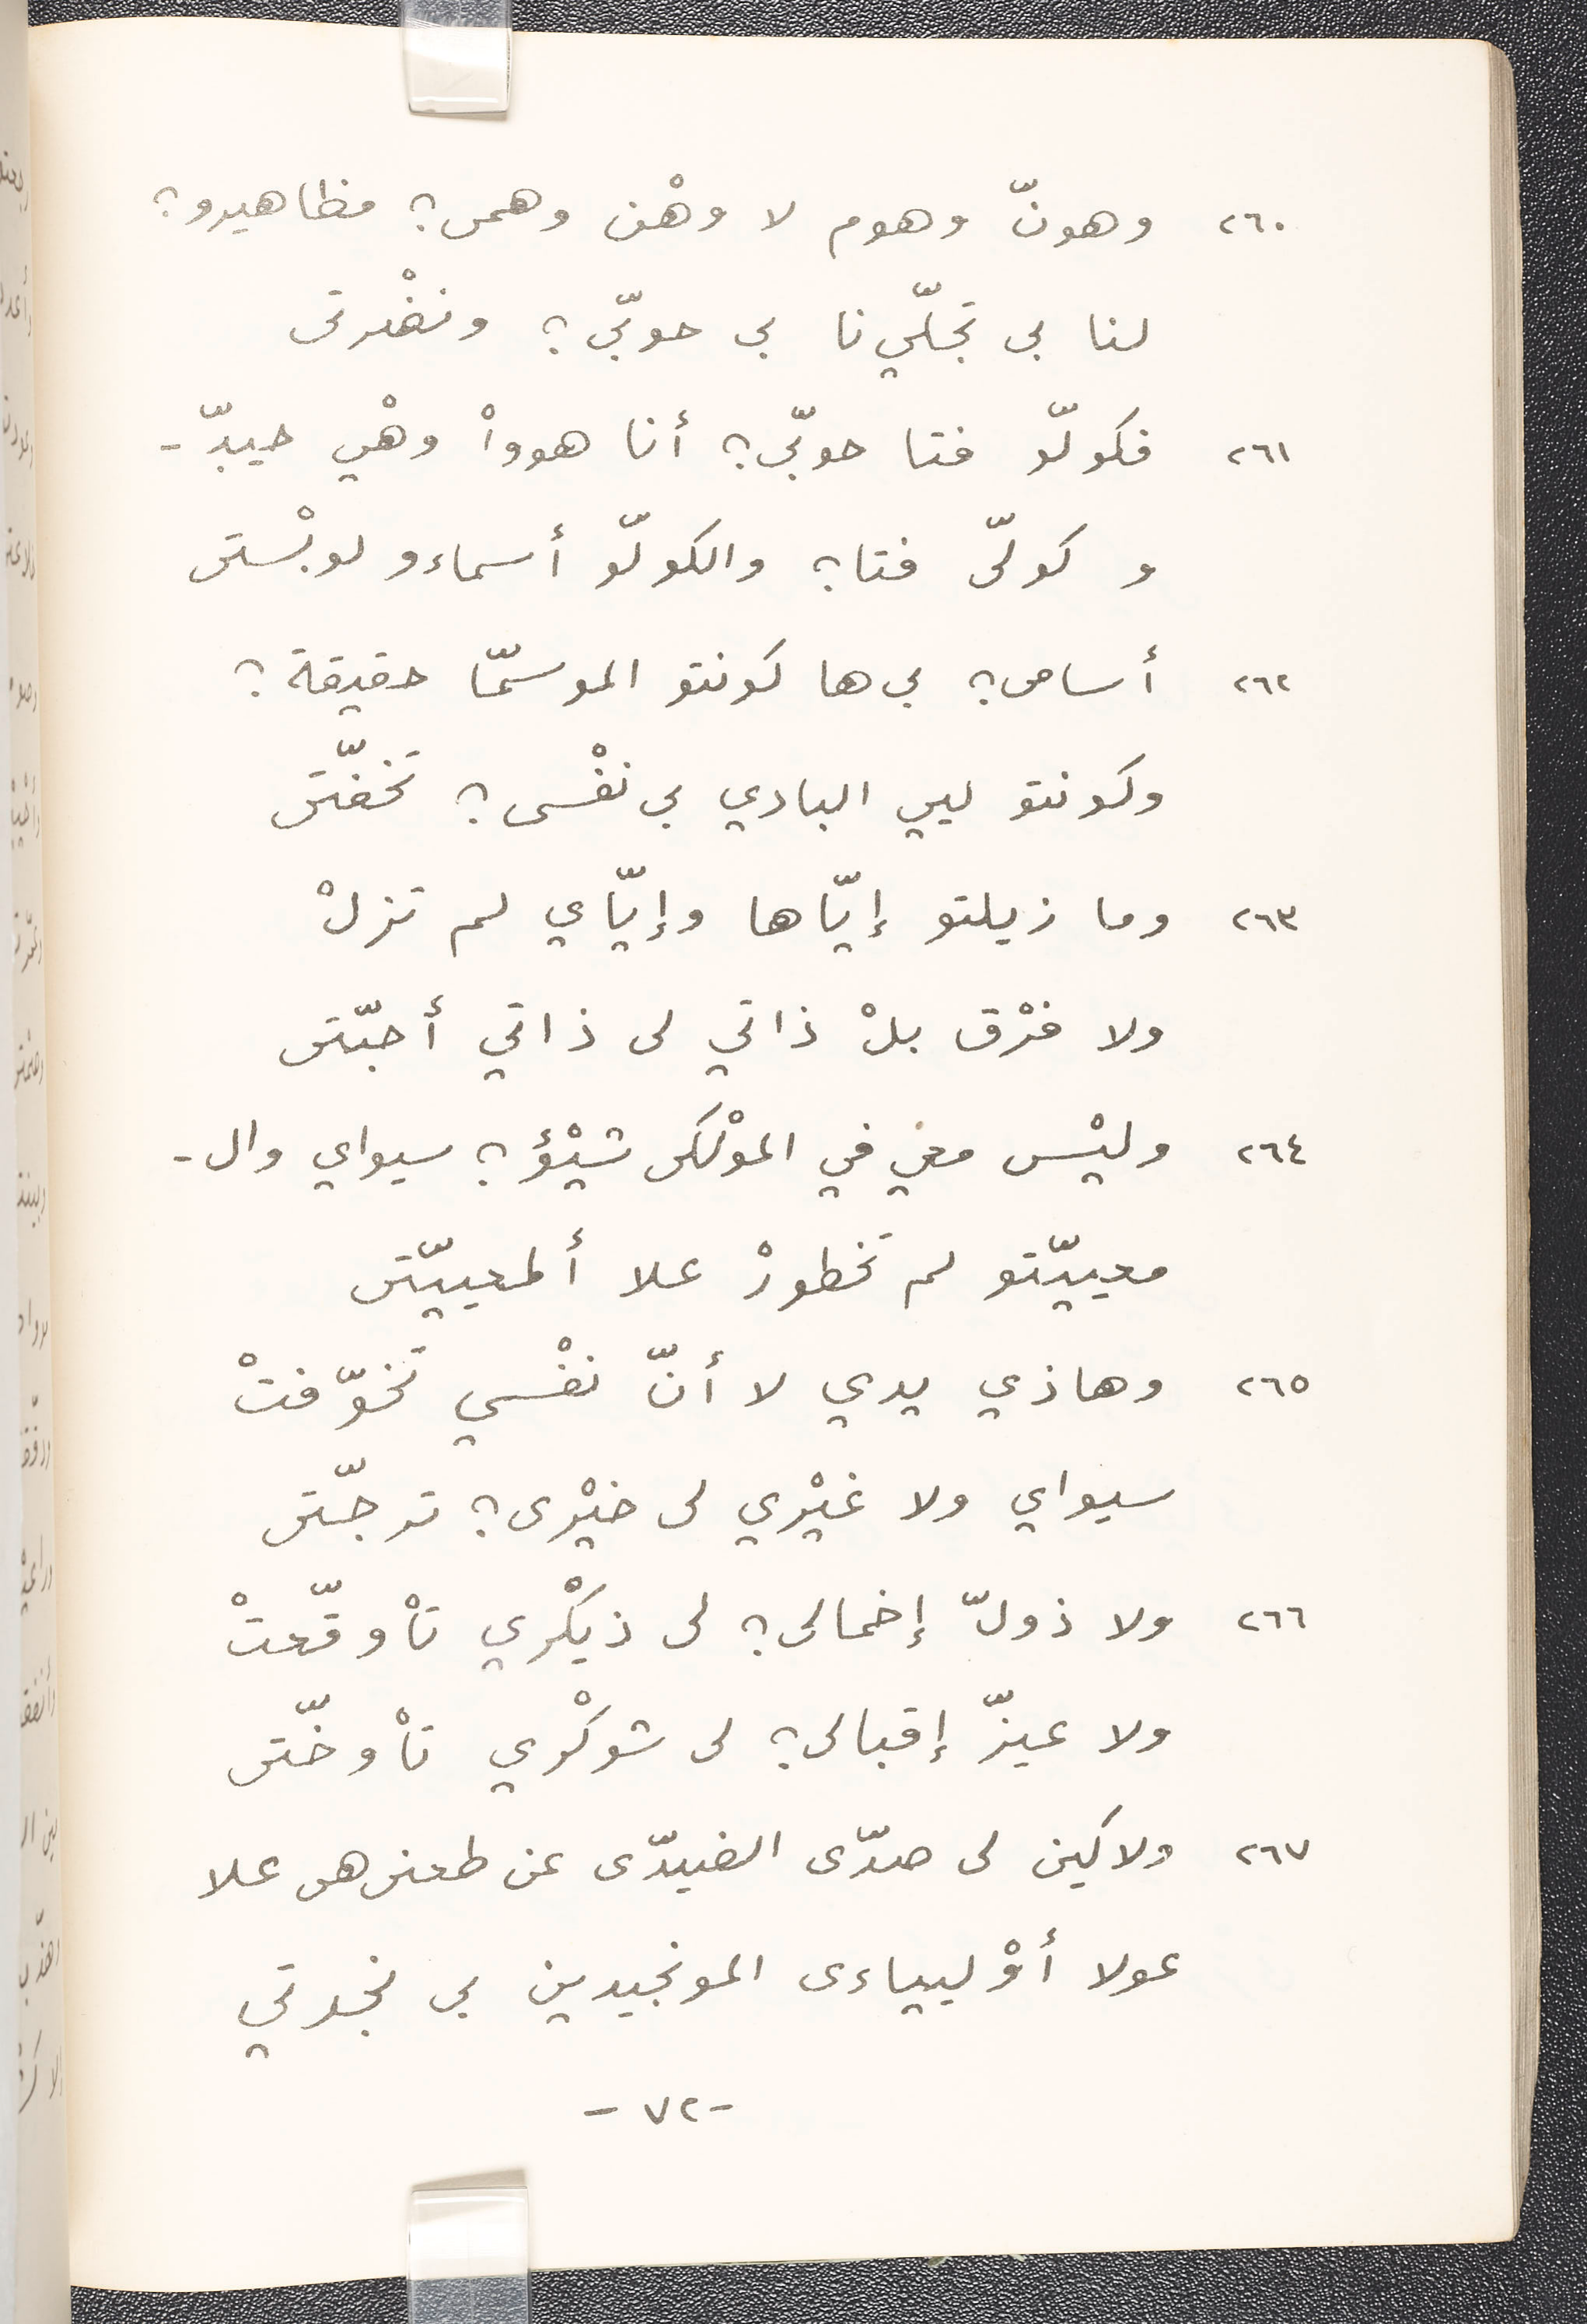 ٢٦٠ وهونّ وهوم لا وهْن وهمى؟ مظاهيرو؟
لنا بى تجلّي نا بى حوبّى؟ ونضْرتى
٢٦١ فكولّو فتا حوبّى؟ أنا هوواْ وهْي حيبّ-
و كولّى فتا؟ والكولّو أسماءو لوبْستى
٢٦٢ أسامى؟ بى ها كونتو الموسمّا حقيقة؟
وكونتو ليي البادي بى نفْسى؟ تخفّتى
٢٦٣ وما زيلتو إيّاها وإيّاي لم تزلْ
ولا فرْق بلْ ذاتي لى ذاتي أحبّتى
٢٦٤ وليْس معي في الموْلكى شيْؤ؟ سيواي وال-
معييّتو لم تخطورْ علا ألمعييّتى
٢٦٥ وهاذي يدي لا أنّ نفْسي تخوّفتْ
سيواي ولا غيْري لى خيْرى؟ ترجّتى
٢٦٦ ولا ذولّ إخمالى؟ لى ذيكْري تاْوقّعتْ
ولا عيزّ إقبالى؟ لى شوكْري تاْوخّتى
٢٦٧ ولاكين لى صدّى الضيدّى عن طعنى هى علا
عولا أوْلييياءى المونجيدين بى نجدتي
-٧٢-